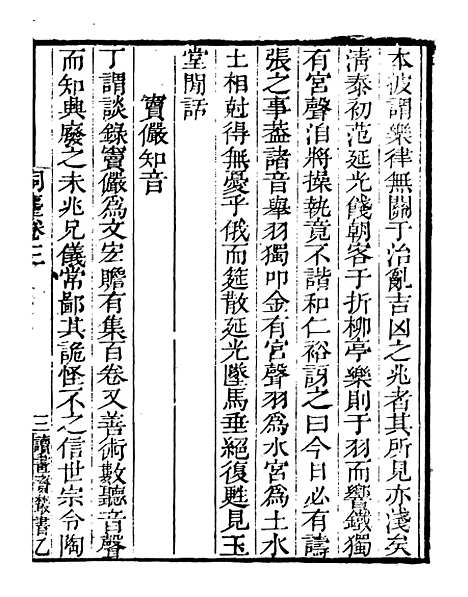 本波謂樂律無關于治亂吉凶之兆者其所見亦淺矣
淸泰初范延光餞朝客于折柳亭樂則于羽而響鐵獨
有宮聲洎將操執竟不諧和仁裕訝之曰今日必有譸
張之事葢諸音舉羽獨叩金有宮聲羽爲水宮爲土水
土相尅得無憂乎俄而筵散延光墜馬垂絕復甦見玉
堂閒話
竇儼知音
丁謂談錄竇儼爲文宏贍有集百卷又善術數聽音聲
而知興廢之未兆兄儀常鄙其詭怪不之信世宗令陶
卷二
三
讀書齋叢書乙